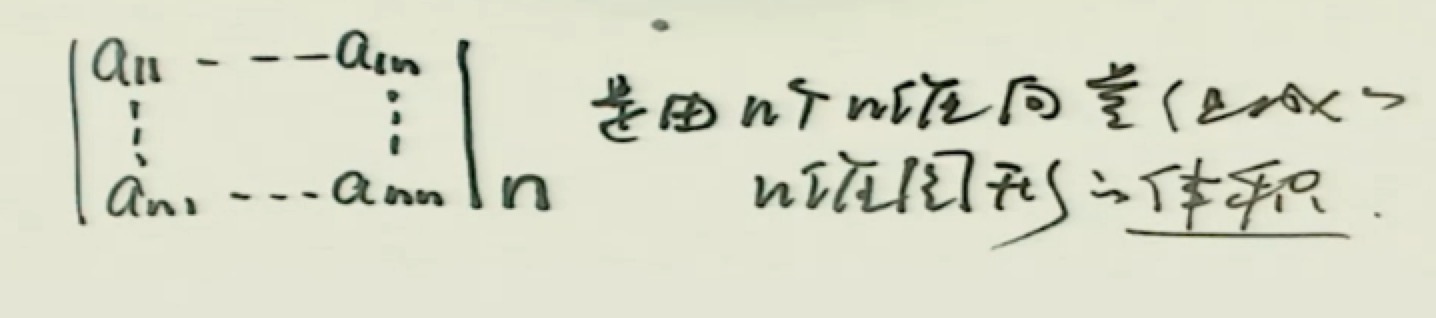 |a₁₁ - - - a₁ₙ|
|aₙ₁ - - - aₙₙ|n
是由n个n维向量(
n维图形的体积.